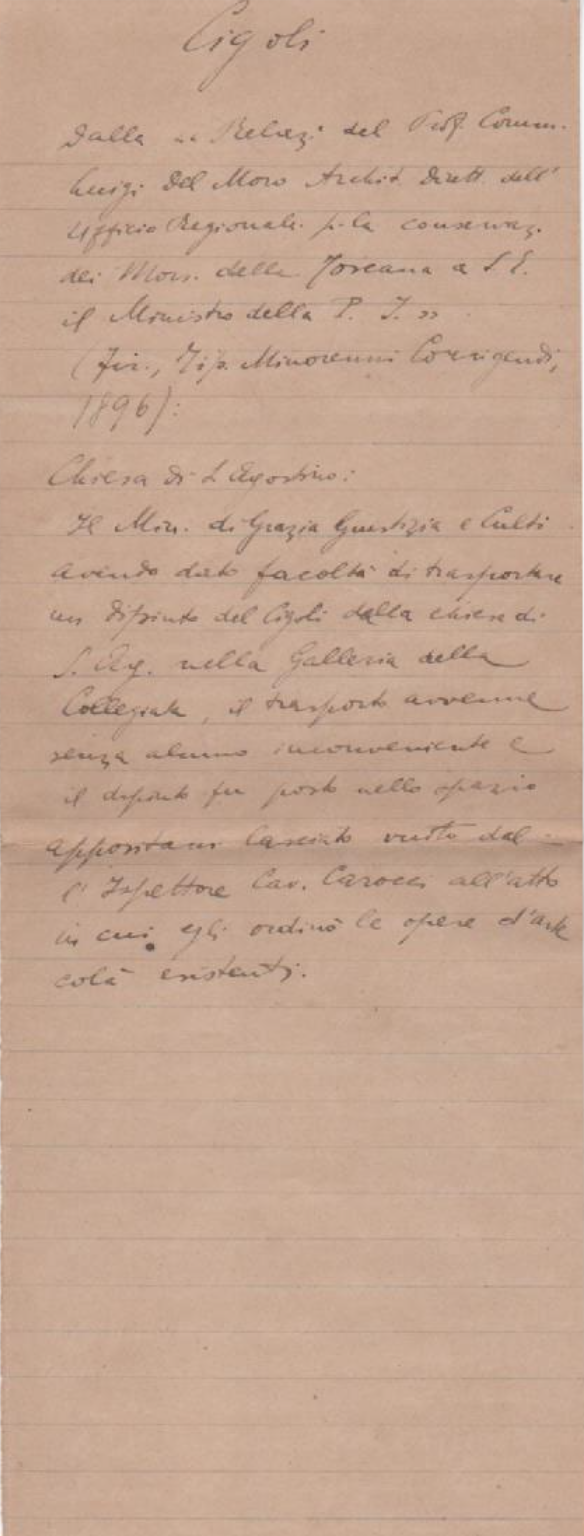 Cigoli
Dalla « Relaz. del Prof. Comm.
Luigi Del Moro Archit. Dirett. dell'
Ufficio Regionale p. la conservaz.
dei Mon. della Toscana a S. E.
il Ministro della P. I. »
(Fir., Tip. Minorenni Corrigendi,
1896):
Chiesa di S. Agostino:
Il Min. di Grazia Giustizia e Culti
avendo dato facoltà di trasportare
un dipinto del Cigoli dalla chiesa di
S. Ag. nella Galleria della
Collegiata, il trasporto avvenne
senza alcuno inconveniente e
il dipinto fu posto nello spazio
appositam. lasciato vuoto dal-
l'Ispettore Cav. Carocci all'atto
in cui egli ordinò le opere d'arte
colà esistenti.